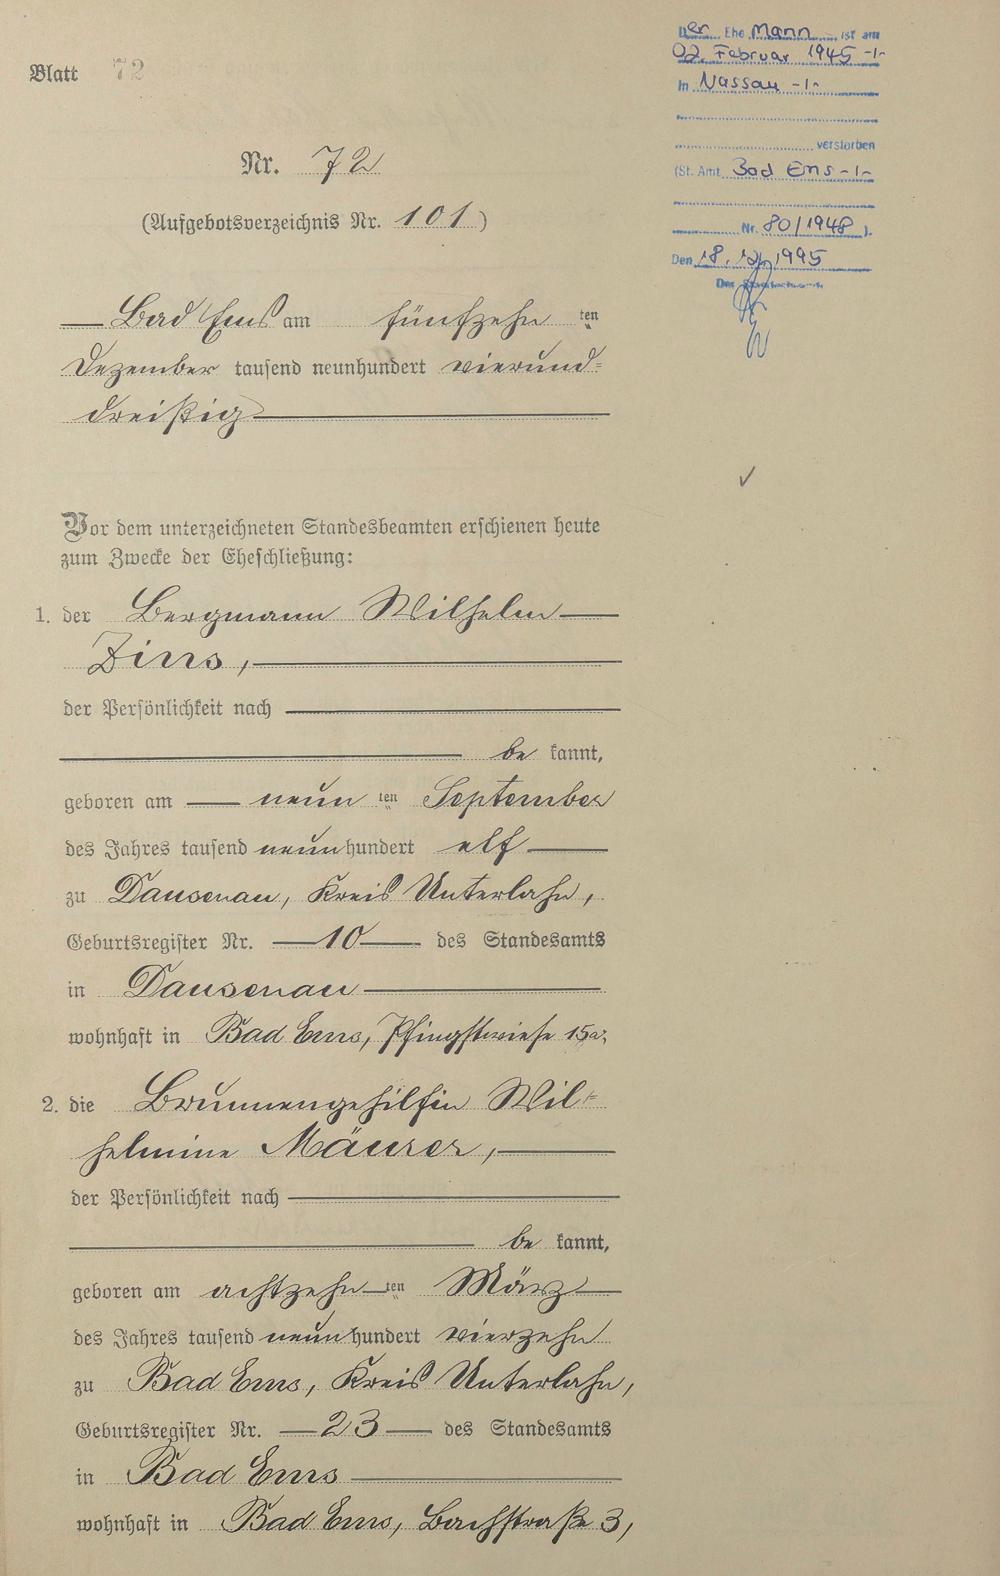 Blatt 72
Nr. 72
(Aufgebotsverzeichnis Nr. 101)
Bad Ems am fünfzehn ten
Dezember tausend neunhundert vierund-
dreißig
Vor dem unterzeichneten Standesbeamten erschienen heute
zum Zwecke der Eheschließung:
1. der Bergmann Wilhelm
Zins,
der Persönlichkeit nach
be kannt,
geboren am neun ten September
des Jahres tausend neunhundert elf
zu Dausenau, Kreis Unterlahn,
Geburtsregister Nr. 10 des Standesamts
in Dausenau
wohnhaft in Bad Ems, Pfingstwiese 15a,
2. die Brunnengehilfin Wil-
helmine Mäurer,
der Persönlichkeit nach
be kannt,
geboren am achtzehn ten März
des Jahres tausend neunhundert vierzehn
zu Bad Ems, Kreis Unterlahn,
Geburtsregister Nr. 23 des Standesamts
in Bad Ems
wohnhaft in Bad Ems, Bachstraße 3,
Der Ehe Mann ist am
02. Februar 1945 -/-
in Nassau -/-
verstorben
(St. Amt Bad Ems -/-
Nr. 80/1948 ).
Den 18.12.1995
Der